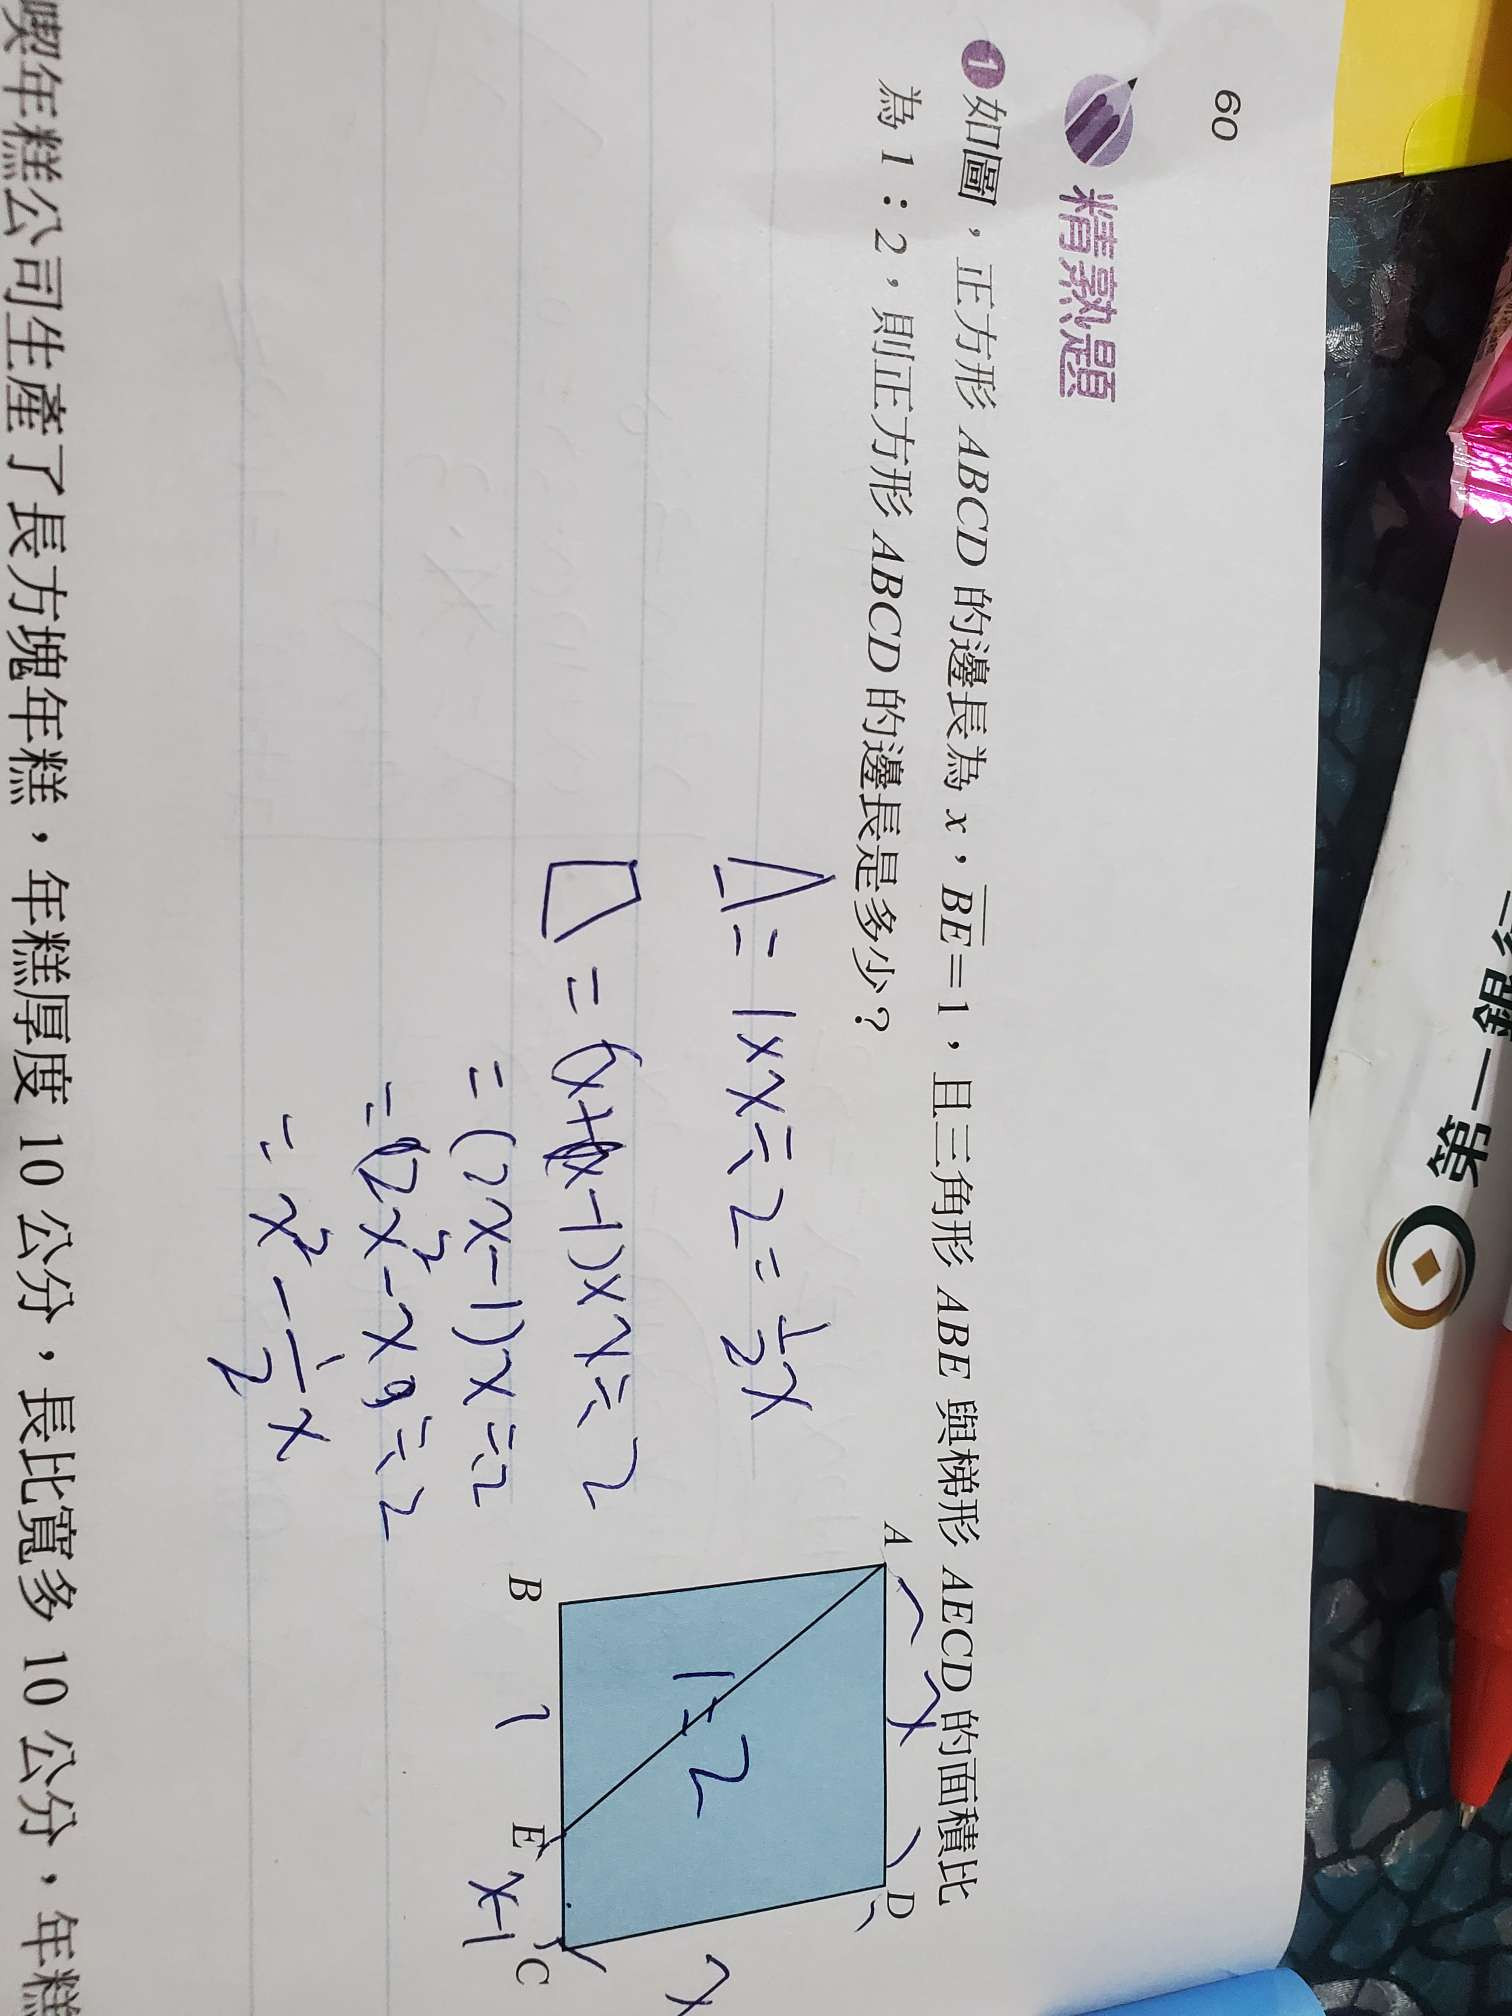 60
精熟題
1 如圖，正方形 ABCD 的邊長為 x，BE=1，且三角形 ABE 與梯形 AECD 的面積比
為 1：2，則正方形 ABCD 的邊長是多少？
= 1×x÷2 = 1/2 x
= (x+x-1)×x÷2
= (2x-1)x÷2
= (2x²-x)÷2
= x² - 1/2 x
A
x
D
1:2
x
B
1
E
x-1
C
喫年糕公司生產了長方塊年糕，年糕厚度 10 公分，長比寬多 10 公分，年糕
第一銀行